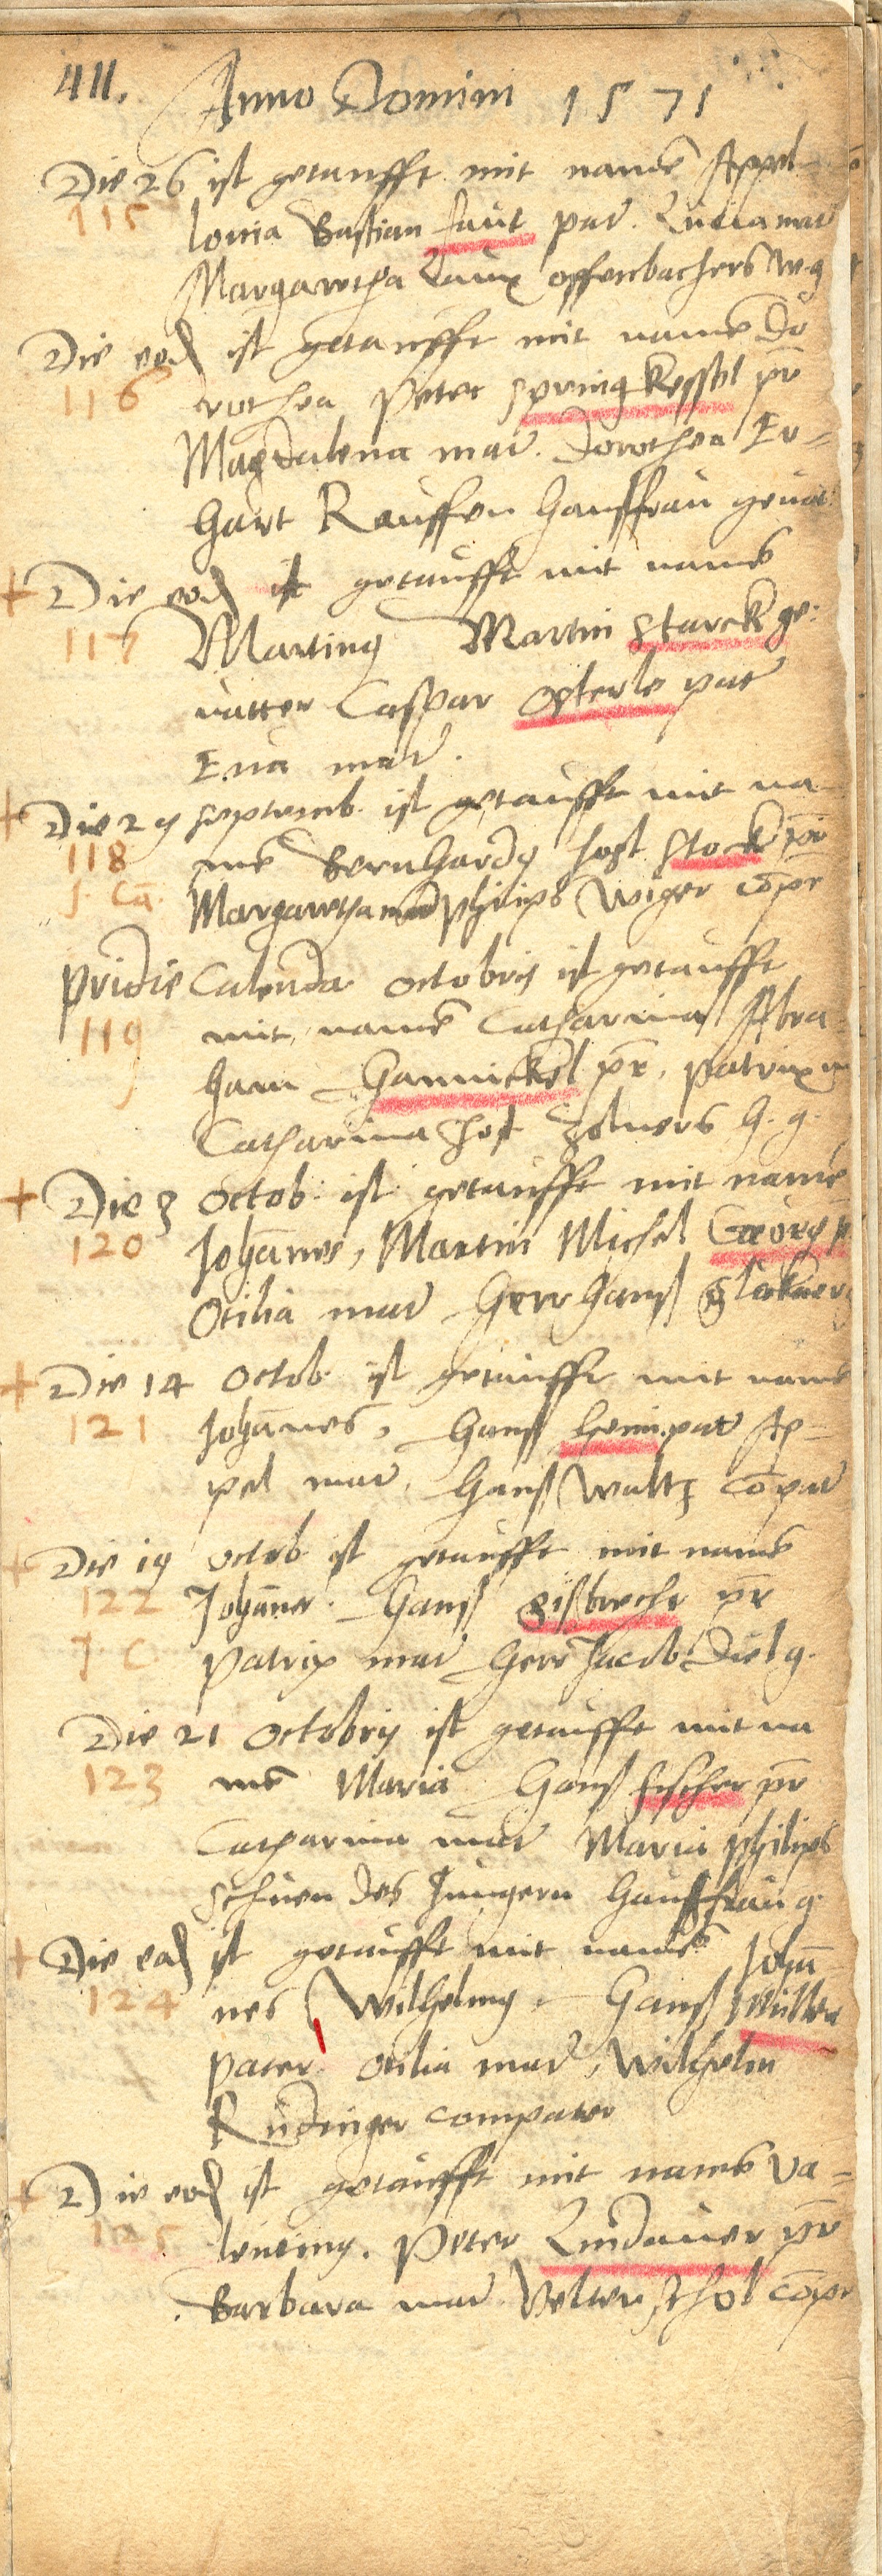 411. Anno Domini 1571
Die 26 ist getaufft mit namē Appel-
115 lonia Bastian faut pat. Lucia mat
Margaretha Laux offenbachers w. g
Die eod ist getaufft mit namē Do
116 rothea Peter springkessel pr̄
Magdalena mat. Dorothea Er=
hart Rauffen haussfrau geuat.
+ Die eod ist getaufft mit namē
117 Martinꝯ Martin starck ge:
uatter Caspar osterle pat
Eua mat.
+ Die 29 septemb. ist getaufft mit na-
118 mē Bernhardꝯ Jost stock pr̄
Margaretha mat philips Wiger cōpr
pridie Calenda octobris ist getaufft
119 mit namē Catharina Abra=
ham Hannickel pr̄. patrix m
Catharina Jost zolners h. g.
+ Die 3 octob: ist getaufft mit namē
120 Johānes, Martin Michel Georg p
Otilia mat Herr hanß
+ Die 14 octob. ist getaufft mit namē
121 Johānes, Hanß heim pat Ap-
pel mat. Hanß Waltz cōpat
+ Die 19 octob ist getaufft mit namē
122 Johānes. Hanß gißbrecht pr̄
Patrix mat Herr Jacob Diel g.
Die 21 octobris ist getaufft mit na
123 mē Maria Hanß fischer pr̄
Catharina mat Maria philips
schuen des Jungern haussfrau g.
+ Die eod ist getaufft mit namē Johā-
124 nes Wilhelmꝯ. Hanß Müller
pater. Otilia mat, Wilhelm
Rüdinger compater
+ Die eod ist getaufft mit namē Va=
125 lentinꝯ. Peter Lindauer pr̄
Barbara mat. Velten schol cōpr